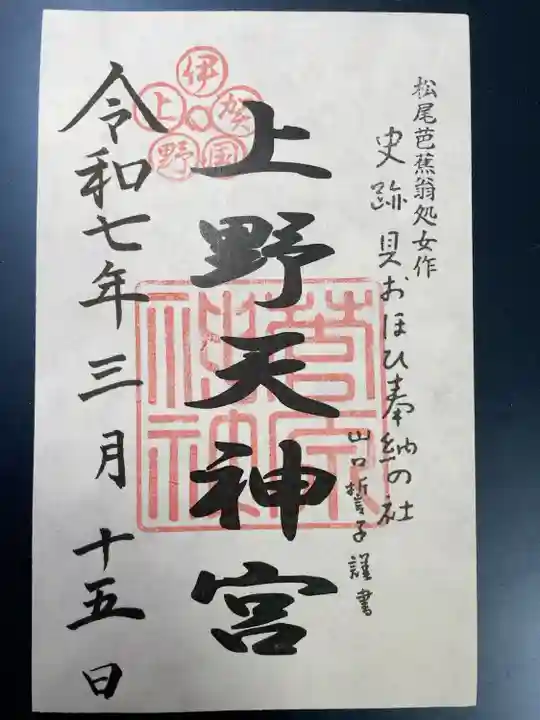 松尾芭蕉翁処女作
史跡 貝おほひ奉納の社
山口誓子謹書
伊賀国上野
上野天神宮
菅原神社
令和七年 三月 十五日